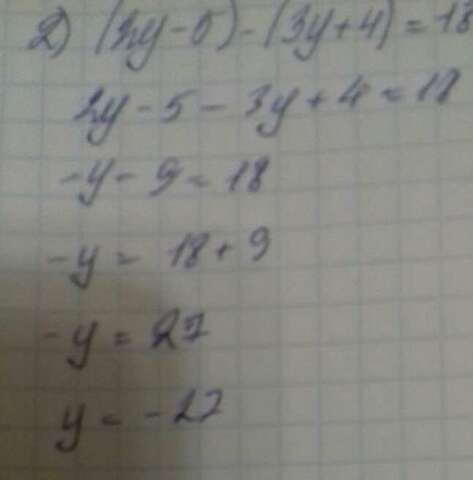 2) (2y-5)-(3y+4)=18
2y-5-3y+4=18
-y-9=18
-y=18+9
-y=27
y=-27